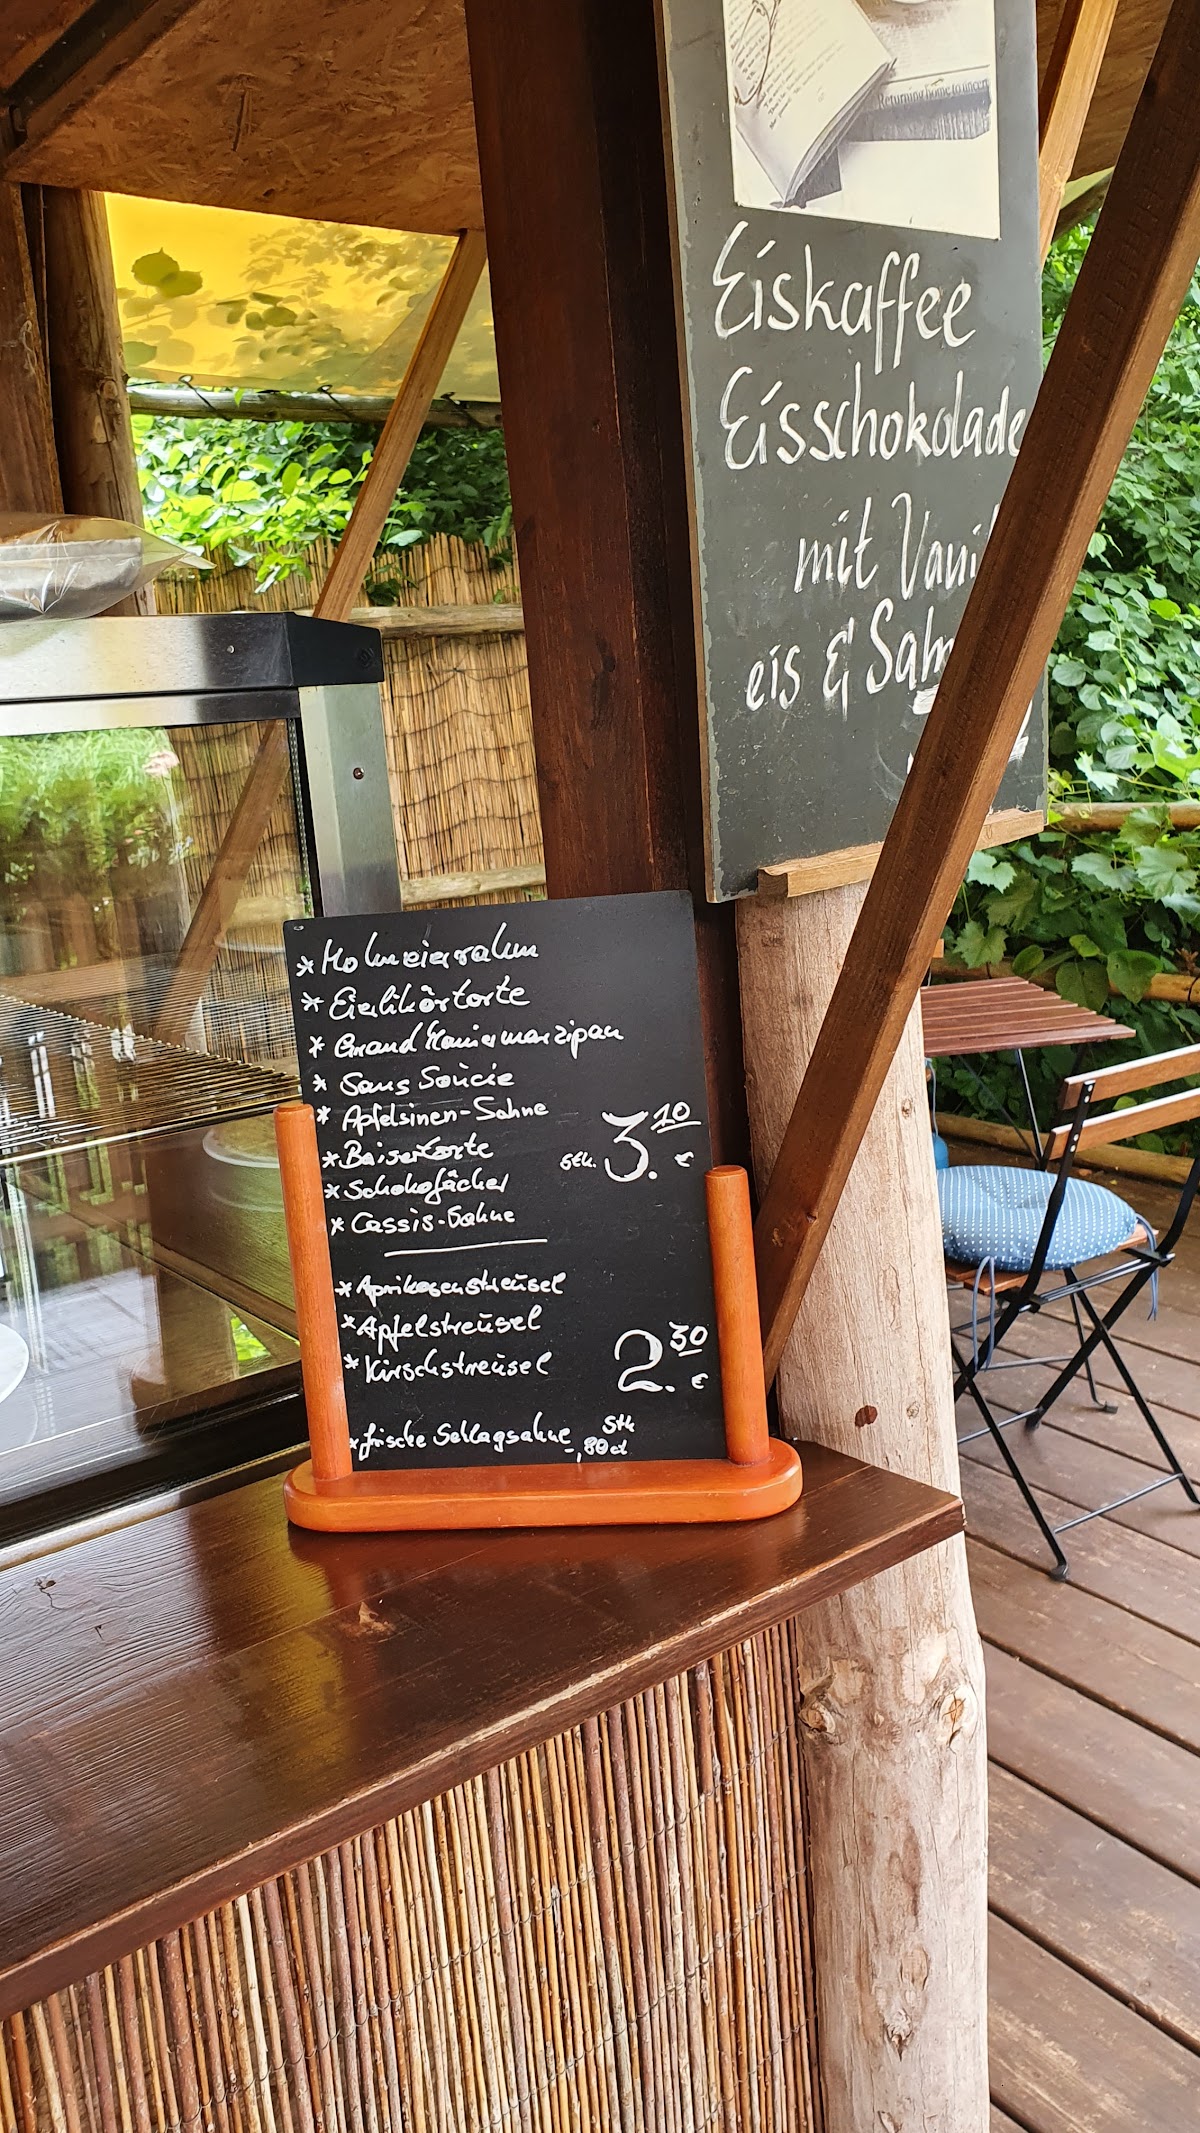 Returning home to uncert
Eiskaffee
Eisschokolade
mit Vani
eis & Sah
* Eierlikörtorte
* Grand Maniermarzipan
* Sans Soucie
* Apfelsinen-Sahne
* Baisertorte
* Schokofächer
* Cassis-Sahne
Stk. 3.10 €
* Aprikosenstreusel
* Apfelstreusel
* Kirschstreusel
2.30 €
* frische Schlagsahne Stk -,80ct